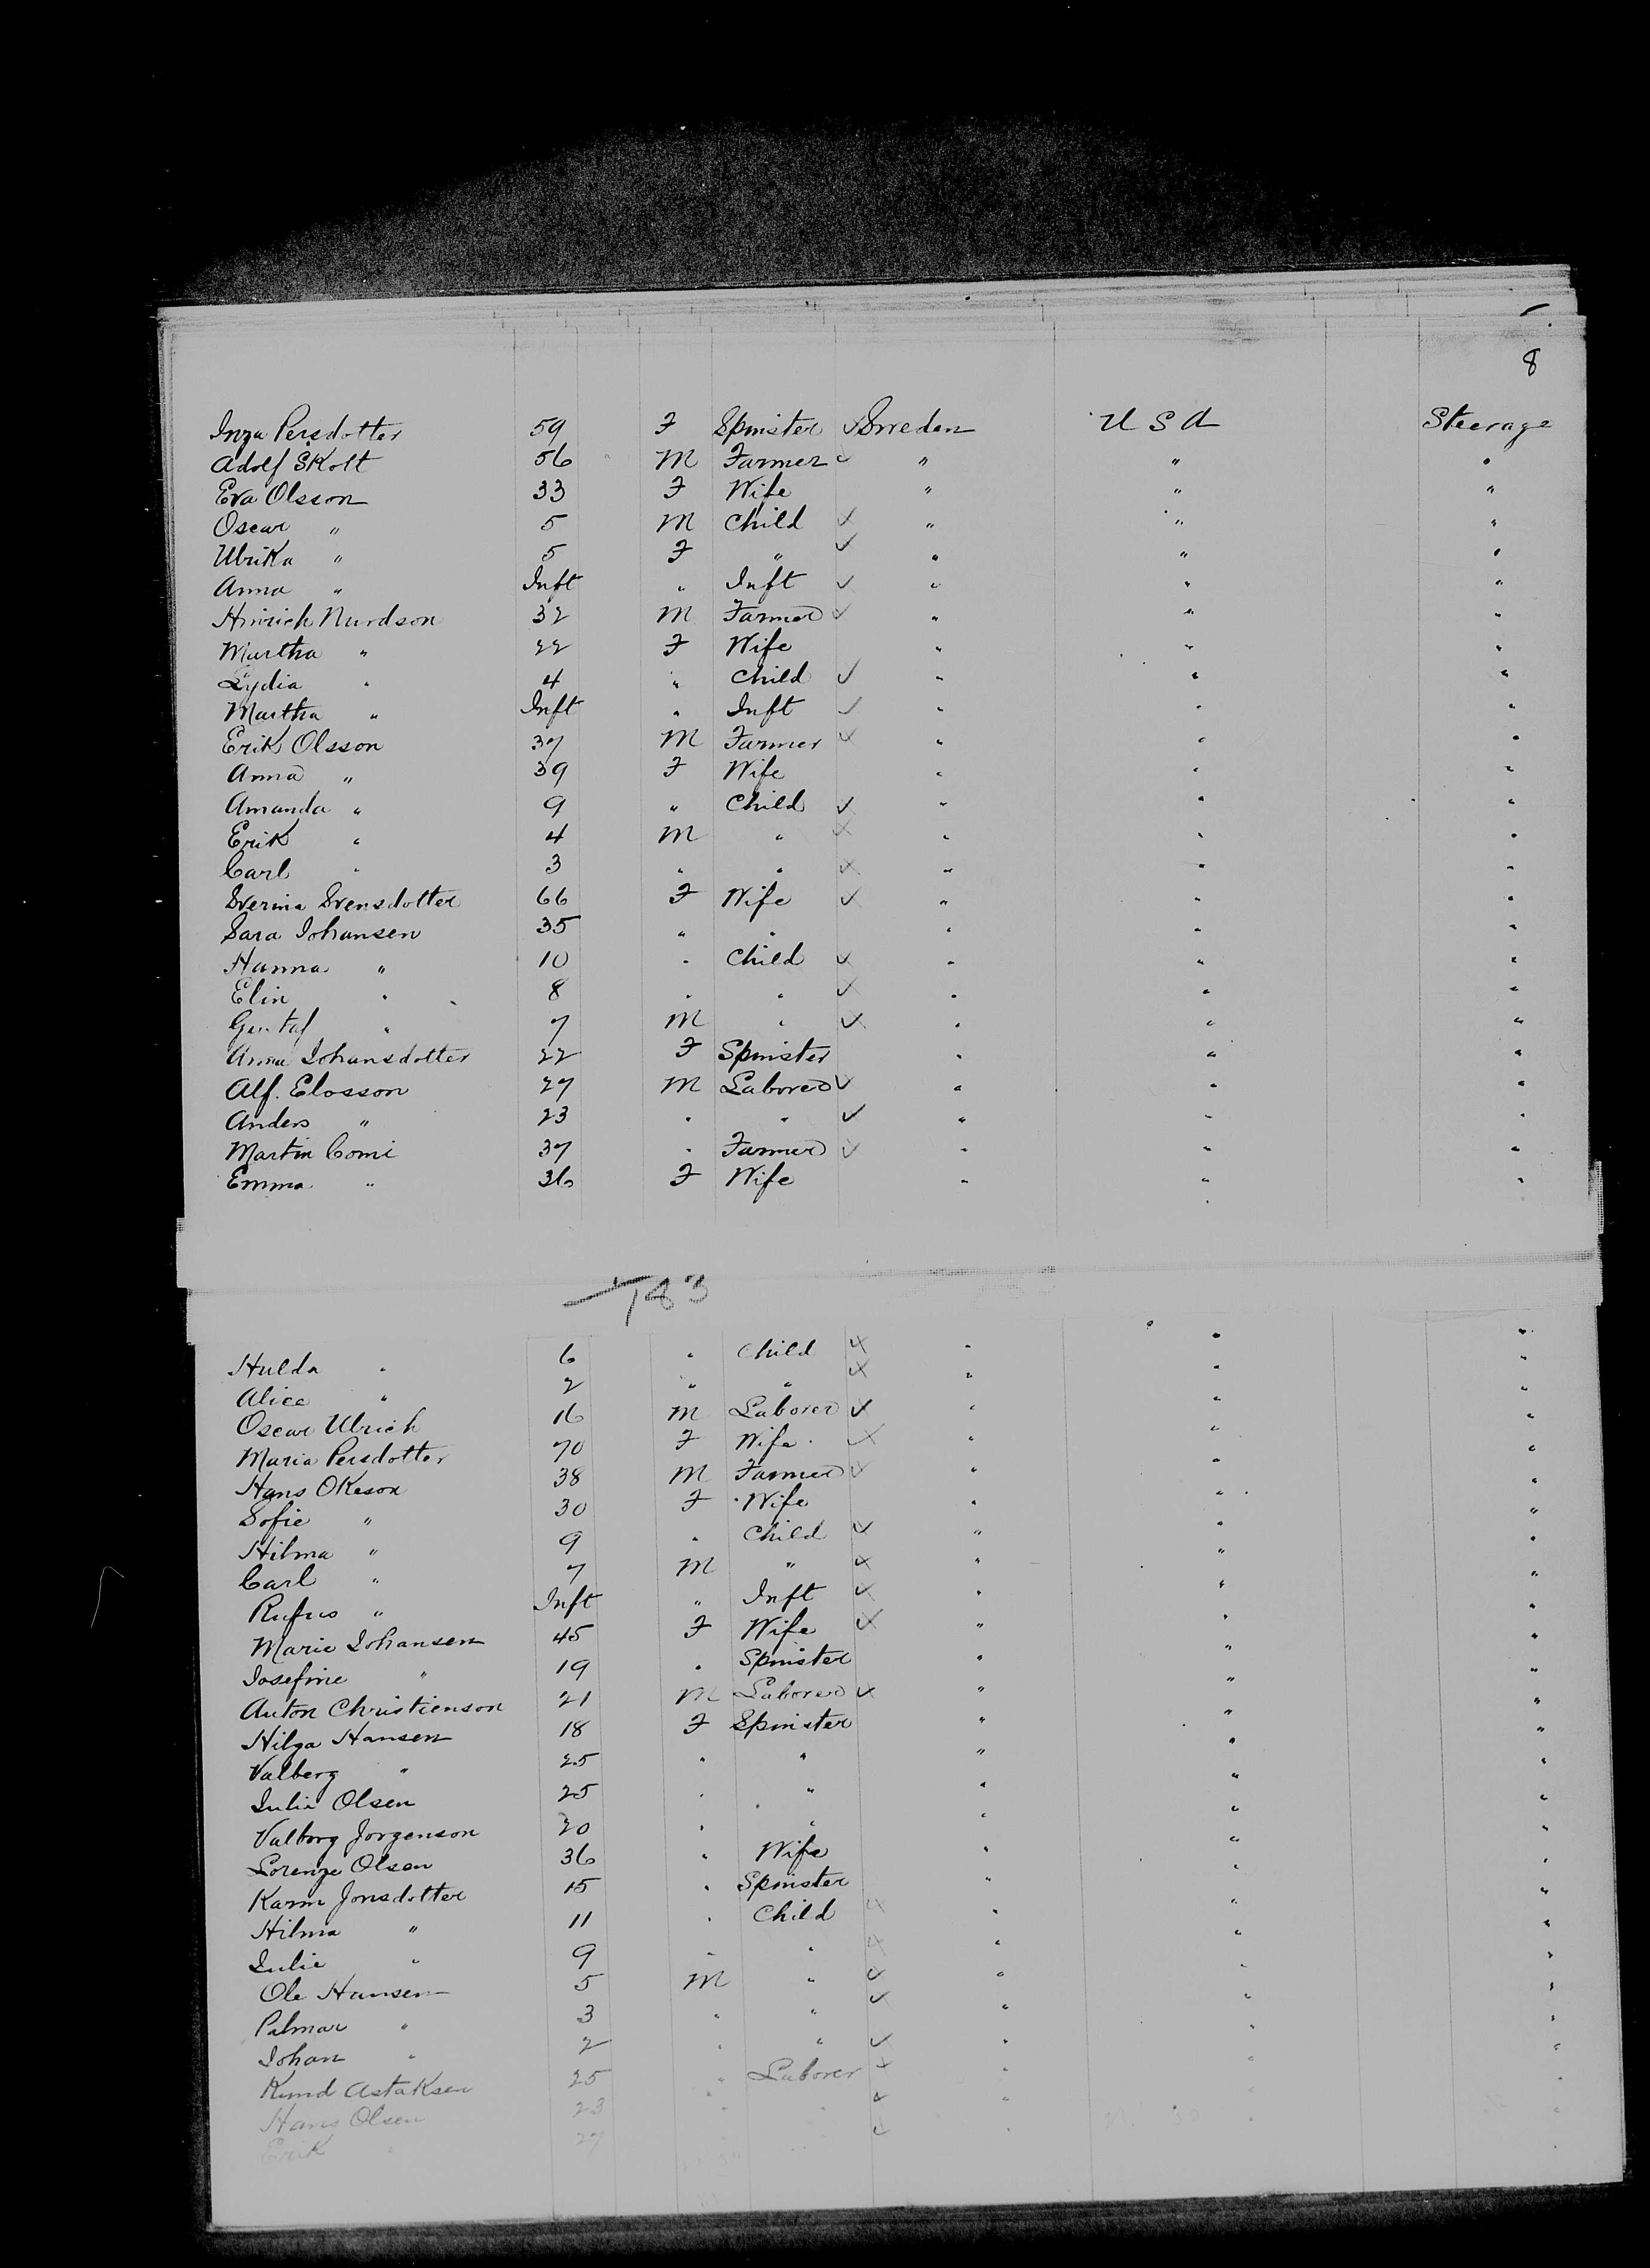 8
Inga Persdotter 59 F Spinster ✓ Sweden U S A Steerage
Adolf Skott 56 M Farmer ✓ " " "
Eva Olsson 33 F Wife " " "
Oscar " 5 M Child ✓ " " "
Ulrika " 5 F " ✓ " " "
Anna " Inft " Inft ✓ " " "
Hinrich Nurdson 32 M Farmer ✓ " " "
Martha " 22 F Wife " " "
Lydia " 4 " Child ✓ " " "
Martha " Inft " Inft ✓ " " "
Erik Olsson 37 M Farmer ✓ " " "
Anna " 39 F Wife " " "
Amanda " 9 " Child ✓ " " "
Erik " 4 M " ✓ " " "
Carl " 3 " " ✓ " " "
Sverina Svensdotter 66 F Wife ✓ " " "
Sara Johansen 35 " " " " "
Hanna " 10 " Child ✓ " " "
Elin " 8 " " ✓ " " "
Gustaf " 7 M " ✓ " " "
Anna Johansdotter 22 F Spinster " " "
Alf. Elosson 27 M Laborer ✓ " " "
Anders " 23 " " ✓ " " "
Martin Comi 37 " Farmer ✓ " " "
Emma " 36 F Wife " " "
183
Hulda " 6 " Child ✓ " " "
Alice " 2 " " ✓ " " "
Oscar Ulrich 16 M Laborer ✓ " " "
Maria Persdotter 70 F Wife ✓ " " "
Hans Okeson 38 M Farmer ✓ " " "
Sofie " 30 F Wife " " "
Hilma " 9 " Child ✓ " " "
Carl " 7 M " ✓ " " "
Rufus " Inft " Inft ✓ " " "
Marie Johansen 45 F Wife ✓ " " "
Josefine " 19 " Spinster " " "
Anton Christienson 21 M Laborer ✓ " " "
Hilga Hansen 18 F Spinster " " "
Valberg " 25 " " " " "
Julia Olsen 25 " " " " "
Valborg Jorgenson 20 " " " " "
Lorenze Olsen 36 " Wife " " "
Karin Jonsdotter 15 " Spinster " " "
Hilma " 11 " Child ✓ " " "
Julie " 9 " " ✓ " " "
Ole Hansen 5 M " ✓ " " "
Palmar " 3 " " ✓ " " "
Johan " 2 " " ✓ " " "
Knud Astaksen 25 " Laborer ✓ " " "
Hans Olsen 23 " " ✓ " " "
Erik " 27 " " ✓ " " "